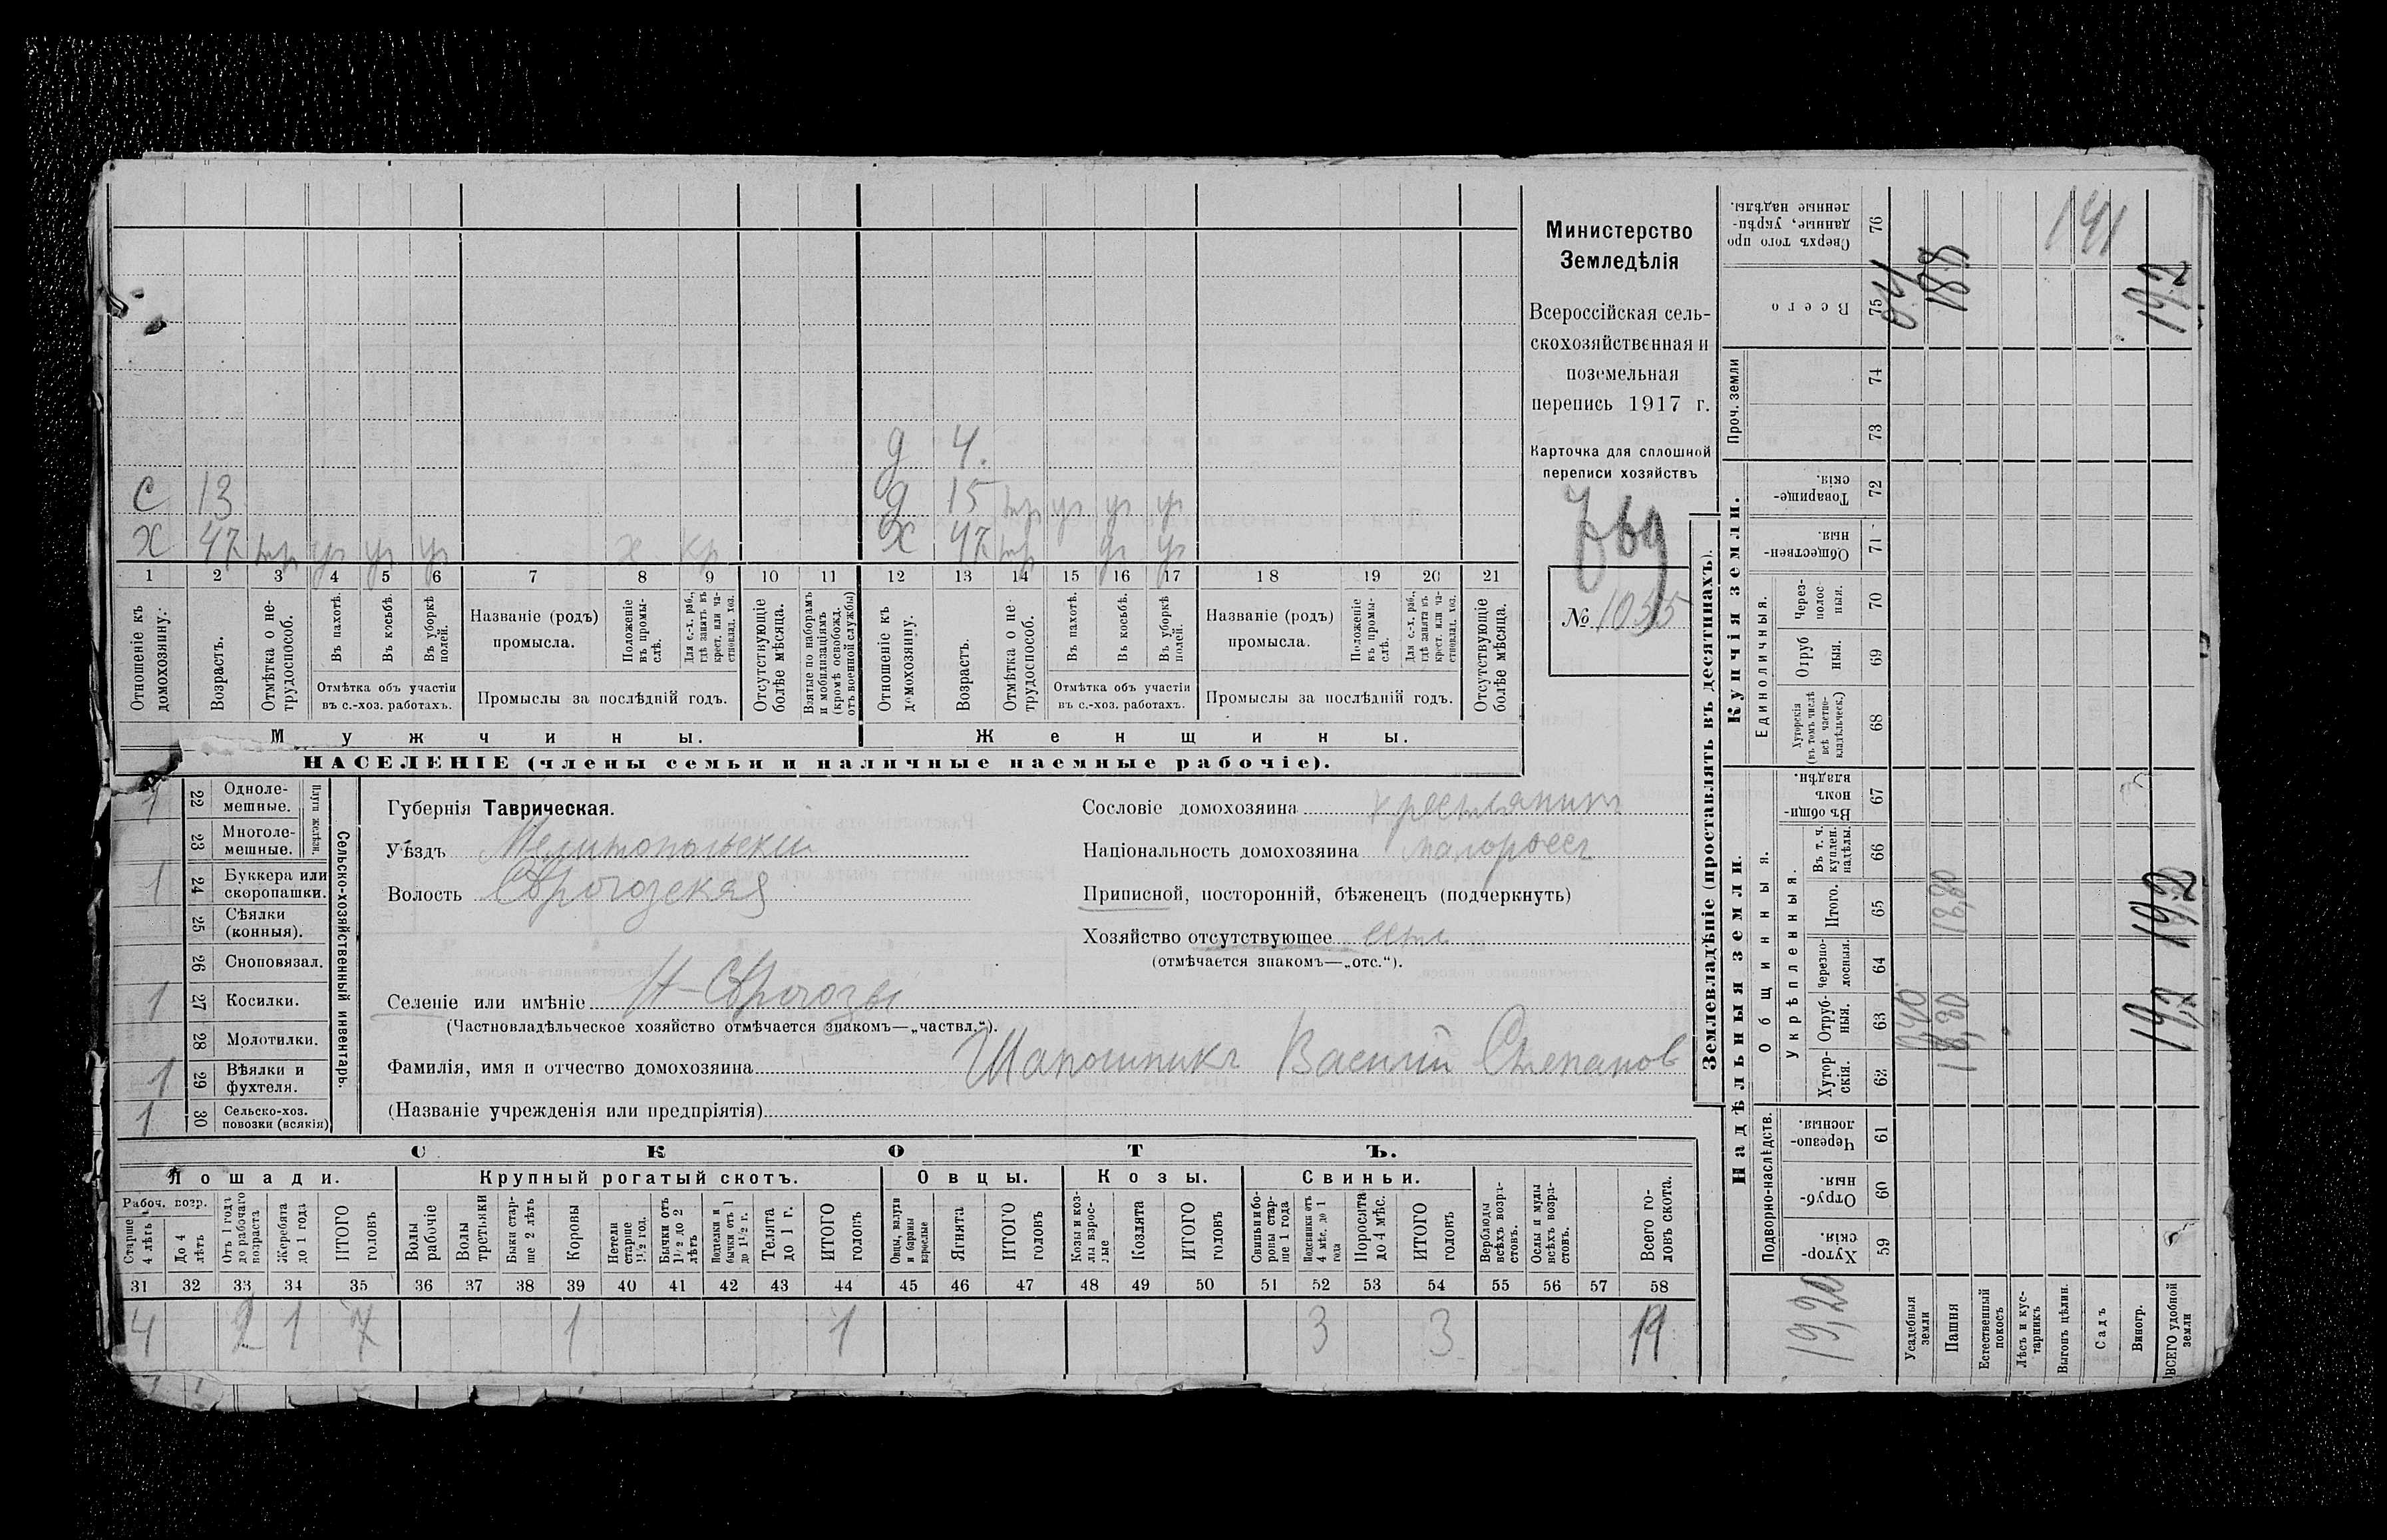 Министерство
Земледѣлія
Всероссійская сель-
скохозяйственная и
поземельная
перепись 1917 г.
Карточка для сплошной
переписи хозяйствъ
№ 1035
д 4.
с 13
д 15 тр ус ус ус
х 47 тр ус ус ус х кр
х 47 тр ус ус
1 2 3 4 5 6 7 8 9 10 11 12 13 14 15 16 17 18 19 20 21
Отношеніе къ домохозяину.
Возрастъ.
Отмѣтка о не-трудоспособ.
Въ пахотѣ.
Въ косьбѣ.
Въ уборкѣ полей.
Отмѣтка объ участіи
въ с.-хоз. работахъ.
Названіе (родъ)
промысла.
Положеніе въ промы-слѣ.
Для с.-х. раб., гдѣ занятъ въ крест. или ча-стновлад. хоз.
Промыслы за послѣдній годъ.
Отсутствующіе болѣе мѣсяца.
Взятые по наборамъ и мобилизаціямъ (кромѣ освобожд. отъ военной службы)
Отношеніе къ домохозяину.
Возрастъ.
Отмѣтка о не трудоспособ.
Въ пахотѣ.
Въ косьбѣ.
Въ уборкѣ полей.
Отмѣтка объ участіи
въ с.-хоз. работахъ.
Названіе (родъ)
промысла.
Положеніе въ промы-слѣ.
Для с.-х. раб., гдѣ занята въ крест. или ча-стновлад. хоз.
Промыслы за послѣдній годъ.
Отсутствующіе болѣе мѣсяца.
Мужчины.
Женщины.
НАСЕЛЕНІЕ (члены семьи и наличные наемные рабочіе).
Сельско-хозяйственный инвентарь.
Плуги желѣзн.
1 22 Одноле-мешные.
23 Многоле-мешные.
1 24 Буккера или скоропашки.
25 Сѣялки (конныя).
26 Сноповязал.
1 27 Косилки.
28 Молотилки.
1 29 Вѣялки и фухтеля.
1 30 Сельско-хоз. повозки (всякія)
Губернія Таврическая.
Уѣздъ Мелитопольскій
Волость
Селеніе или имѣніе
(Частновладѣльческое хозяйство отмѣчается знакомъ—„частвл.“).
Фамилія, имя и отчество домохозяина Шапошникъ Василій Степанов
(Названіе учрежденія или предпріятія)
Сословіе домохозяина крестьянинъ
Національность домохозяина малороссъ
Приписной, посторонній, бѣженецъ (подчеркнуть)
Хозяйство отсутствующее
(отмѣчается знакомъ—„отс.“).
СКОТЪ.
Лошади.
Крупный рогатый скотъ.
Овцы.
Козы.
Свиньи.
Рабоч. возр.
Старше 4 лѣтъ
До 4 лѣтъ
Отъ 1 года до рабочаго возраста
Жеребята до 1 года
ИТОГО головъ
Волы рабочіе
Волы третьяки
Быки стар-ше 2 лѣтъ
Коровы
Нетели старше 1½ год.
Бычки отъ 1½ до 2 лѣтъ
Подтелки и бычки отъ 1 до 1½ г.
Телята до 1 г.
ИТОГО головъ
Овцы, валухи и бараны взрослые
Ягнята
ИТОГО головъ
Козы и коз-лы взрос-лые
Козлята
ИТОГО головъ
Свиньи и бо-ровы стар-ше 1 года
Подсвинки отъ 4 мѣс. до 1 года
Поросята до 4 мѣс.
ИТОГО головъ
Верблюды всѣхъ возра-стовъ.
Ослы и мулы всѣхъ возра-стовъ.
Всего го-ловъ скота.
31 32 33 34 35 36 37 38 39 40 41 42 43 44 45 46 47 48 49 50 51 52 53 54 55 56 57 58
4 2 1 7 1 1 3 3 11
Землевладѣніе (проставлять въ десятинахъ).
Купчія земли.
Проч. земли
Единоличныя.
Сверхъ того про данные, укрѣп-ленные надѣлы. 76
Всего 75
74
73
Товарище-скія. 72
Обществен-ныя. 71
Через-полос-ныя. 70
Отруб ныя. 69
Хуторскія (въ томъ числѣ всѣ частно-владѣльческ.) 68
Надѣльныя земли.
Общинныя.
Укрѣпленныя.
Въ общи-номъ владѣн. 67
Въ т. ч. куплен. надѣлы. 66
Итого. 65
Черезпо-лосныя. 64
Отруб-ныя. 63
Хутор-скія. 62
Подворно-наслѣдств.
Черезпо-лосныя. 61
Отруб-ныя. 60
Хутор-скія. 59
Усадебныя земли
Пашня
Естественный покосъ
Лѣсъ и кус-тарникъ
Выгонъ цѣлин.
Садъ
Виногр.
ВСЕГО удобной земли
19,20
0,40
18,80
18,80
19,2
19,2
0,4
18,8
19,2
141